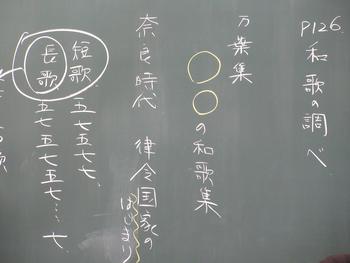 P126. 和歌の調べ
万葉集
○○の和歌集
奈良時代 律令国家の
はじまり
短歌 五七五七七、
長歌 五七五七五七…七、